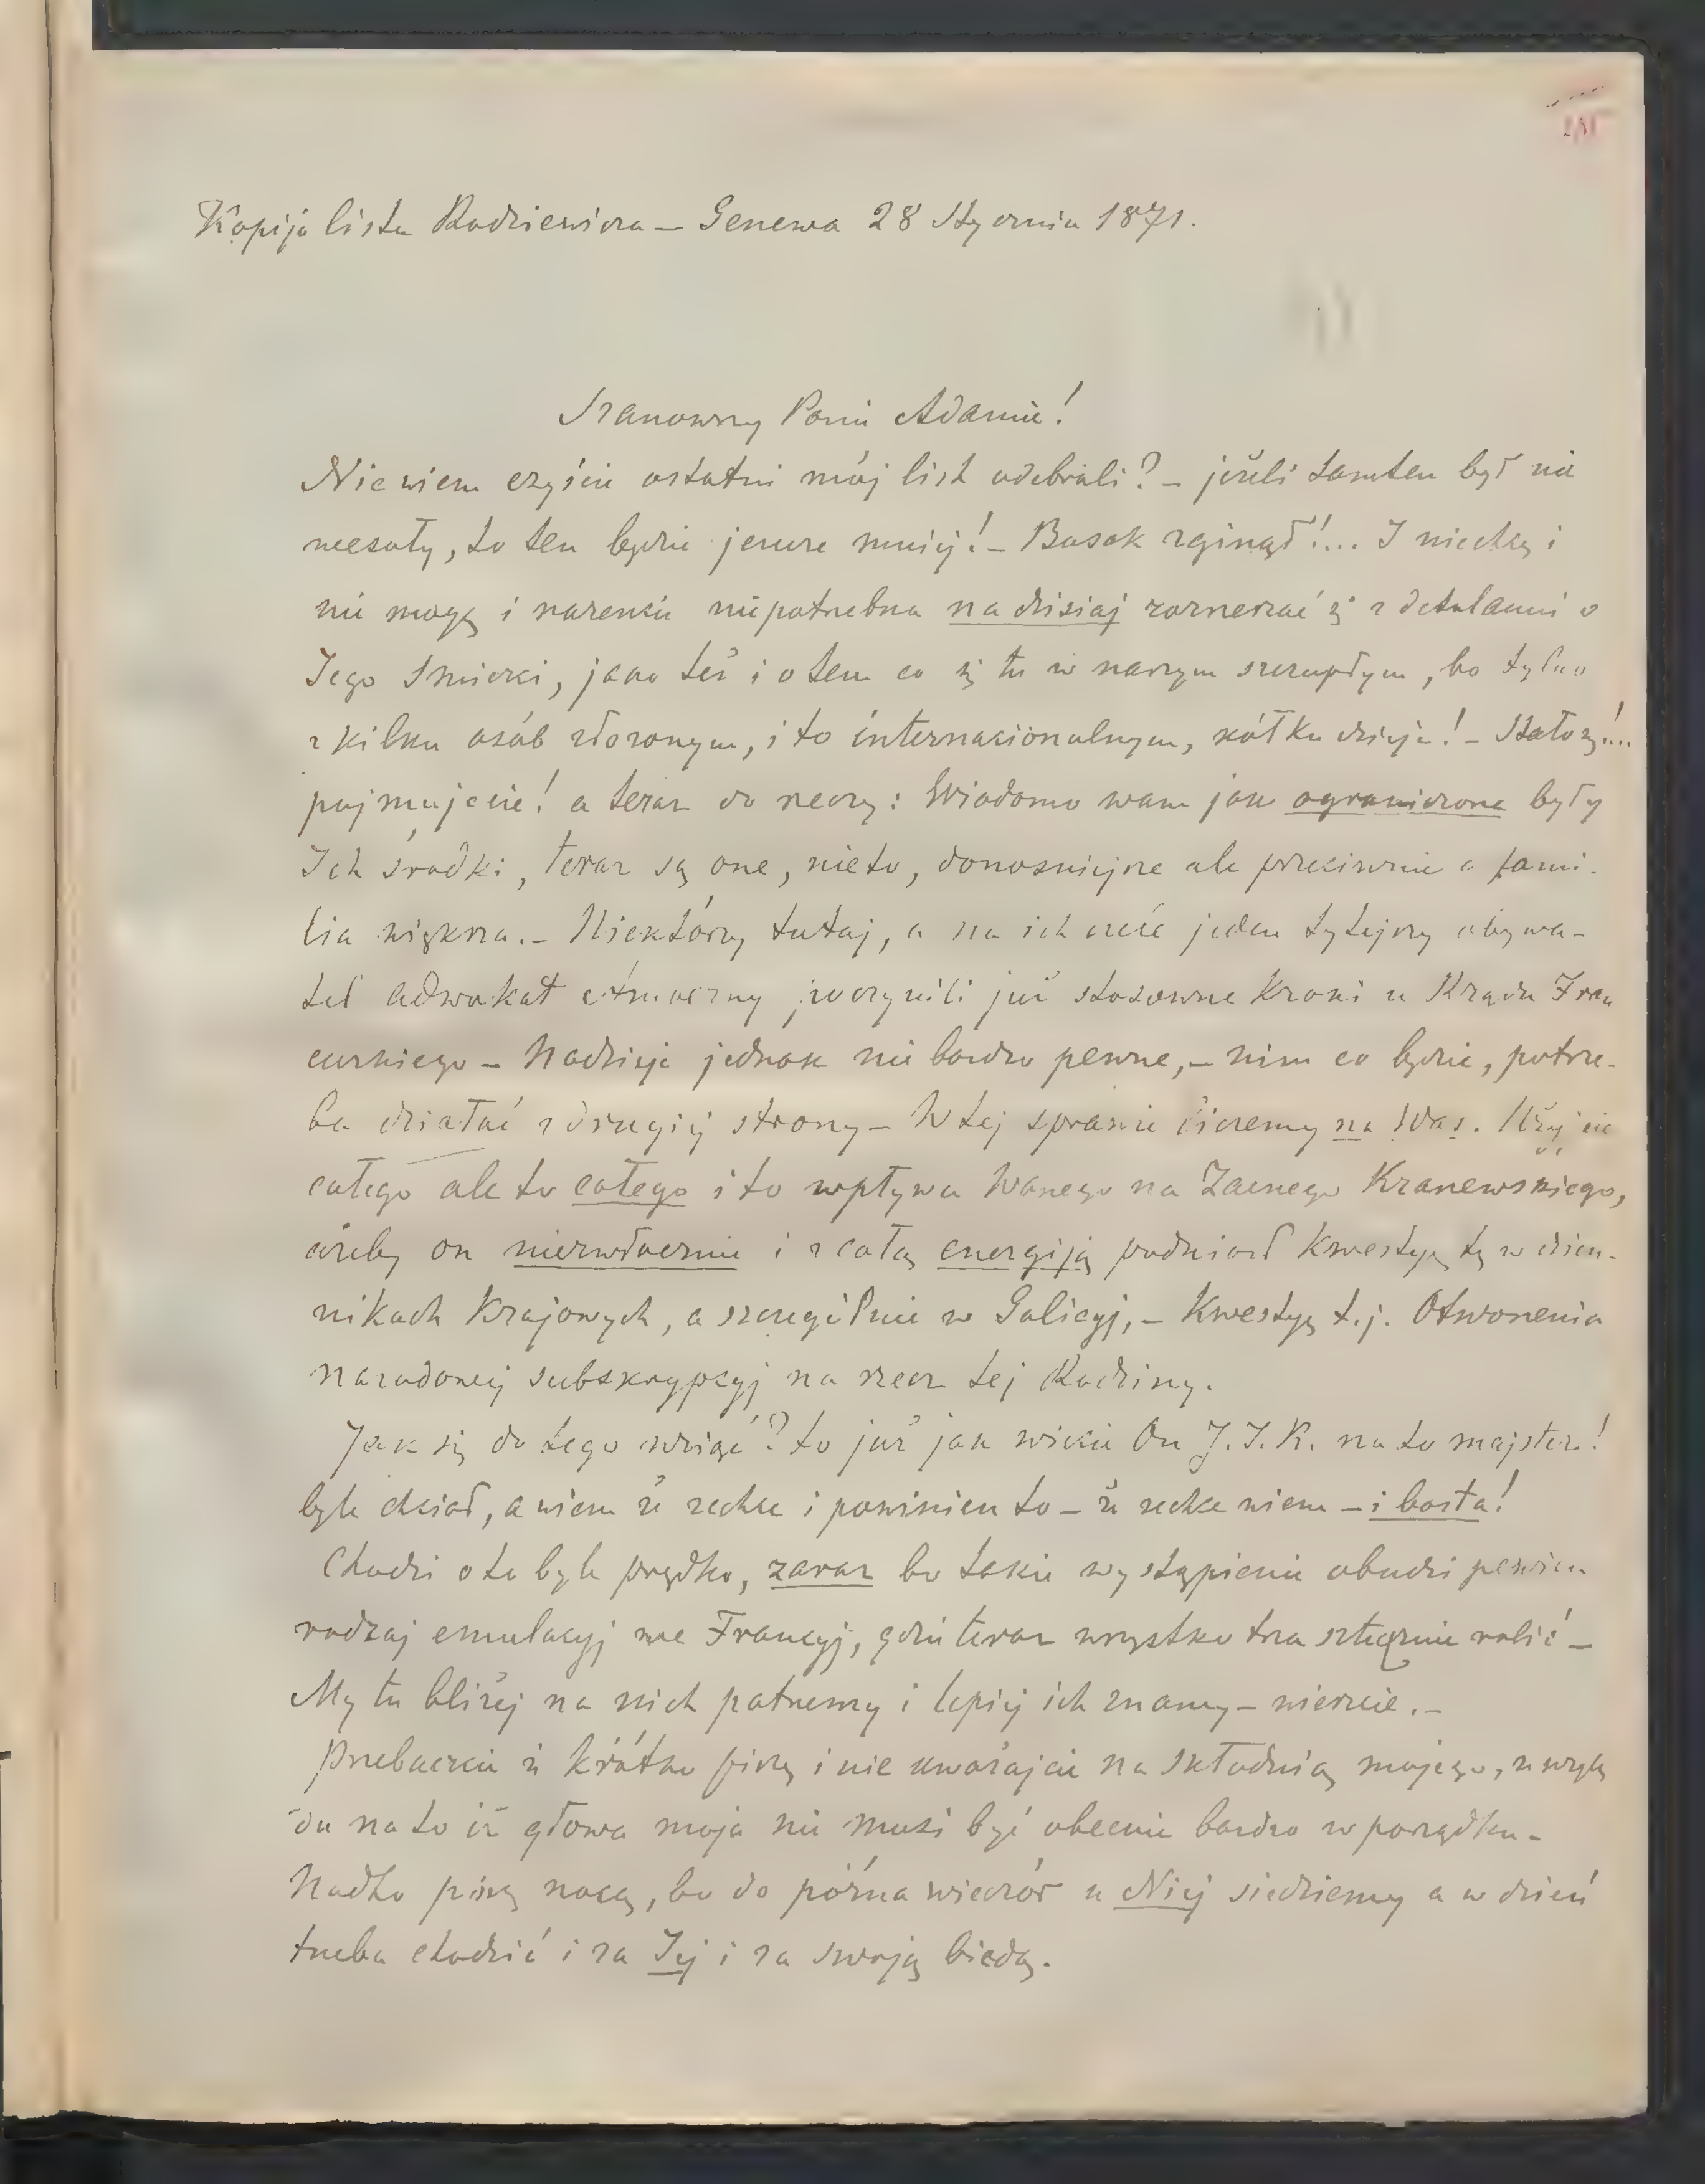 Kopija listu Radziewicza — Genewa 28 Stycznia 1871.
Szanowny Panie Adamie!
Nie wiem czyście ostatni mój list odebrali? — jeżeli tamten był nie
wesoły, to ten będzie jeszcze mniej! — Bosak zginął!... I niechcę i
nie mogę i nareszcie niepotrzebna na dzisiaj rozwierzać się z detalami o
Jego śmierci, jako też i o tem co się tu w naszym szczupłym, bo tylko
z kilku osób złożonym, i to internacionalnym, kółku dzieje! — Stało się!...
pojmujecie! a teraz do rzeczy: Wiadomo wam jak ograniczone były
Ich środki, teraz są one, nieto, donośniejsze ale przeciwnie a fami-
lia większa. — Niektórzy tutaj, a na ich czele jeden tutejszy obywa-
tel adwokat poczynili już stosowne kroki u Rządu Fran
cuzkiego — Nadzieje jednak nie bardzo pewne, — nim co będzie, potrze-
ba działać z drugiej strony — W tej sprawie liczemy na Was. Użyjcie
całego ale to całego i to wpływu Waszego na Zacnego Kraszewskiego,
ażeby on niezwłocznie i z całą energiją podniosł kwestyę tę w dzien-
nikach Krajowych, a szczególnie w Galicyj, — Kwestyę t.j. Otworzenia
narodowej subskrypcyj na rzecz tej Rodziny.
Jak się do tego wziąć? to już jak wiecie On J. I. K. na to majster!
byle chciał, a wiem że zechce i powinien to — że zechce wiem — i basta!
Chodzi o to byle prędko, zaraz bo takie wystąpienie obudzi pewien
rodzaj emulacyj we Francyj, gdzie teraz wszystko trza sztucznie robić —
My tu bliżej na nich patrzemy i lepiej ich znamy — wierzcie. —
Przebaczcie iż krótko piszę i nie uważajcie na składnią mojego, z wzglę
du na to iż głowa moja nie musi być obecnie bardzo w porządku —
Nadto piszę nocą, bo do późna wieczór u Niej siedziemy a w dzień
trzeba chodzić i za Jej i za swoją biedą.